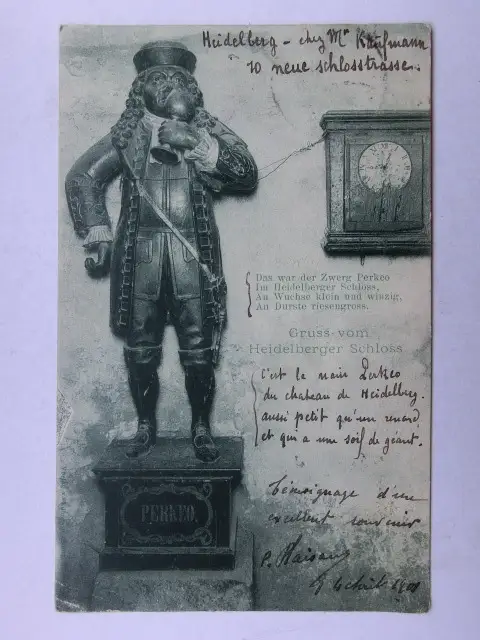 Heidelberg - chez Mr Kaufmann
10 neue schlosstrasse.
Das war der Zwerg Perkeo
Im Heidelberger Schloss,
An Wuchse klein und winzig,
An Durste riesengross.
Gruss vom
Heidelberger Schloss
C'est le nain Perkeo
du chateau de Heidelberg.
aussi petit qu'un renard
et qui a une soif de géant.
Témoignage d'un
excellent souvenir
P.
1901
PERKEO.